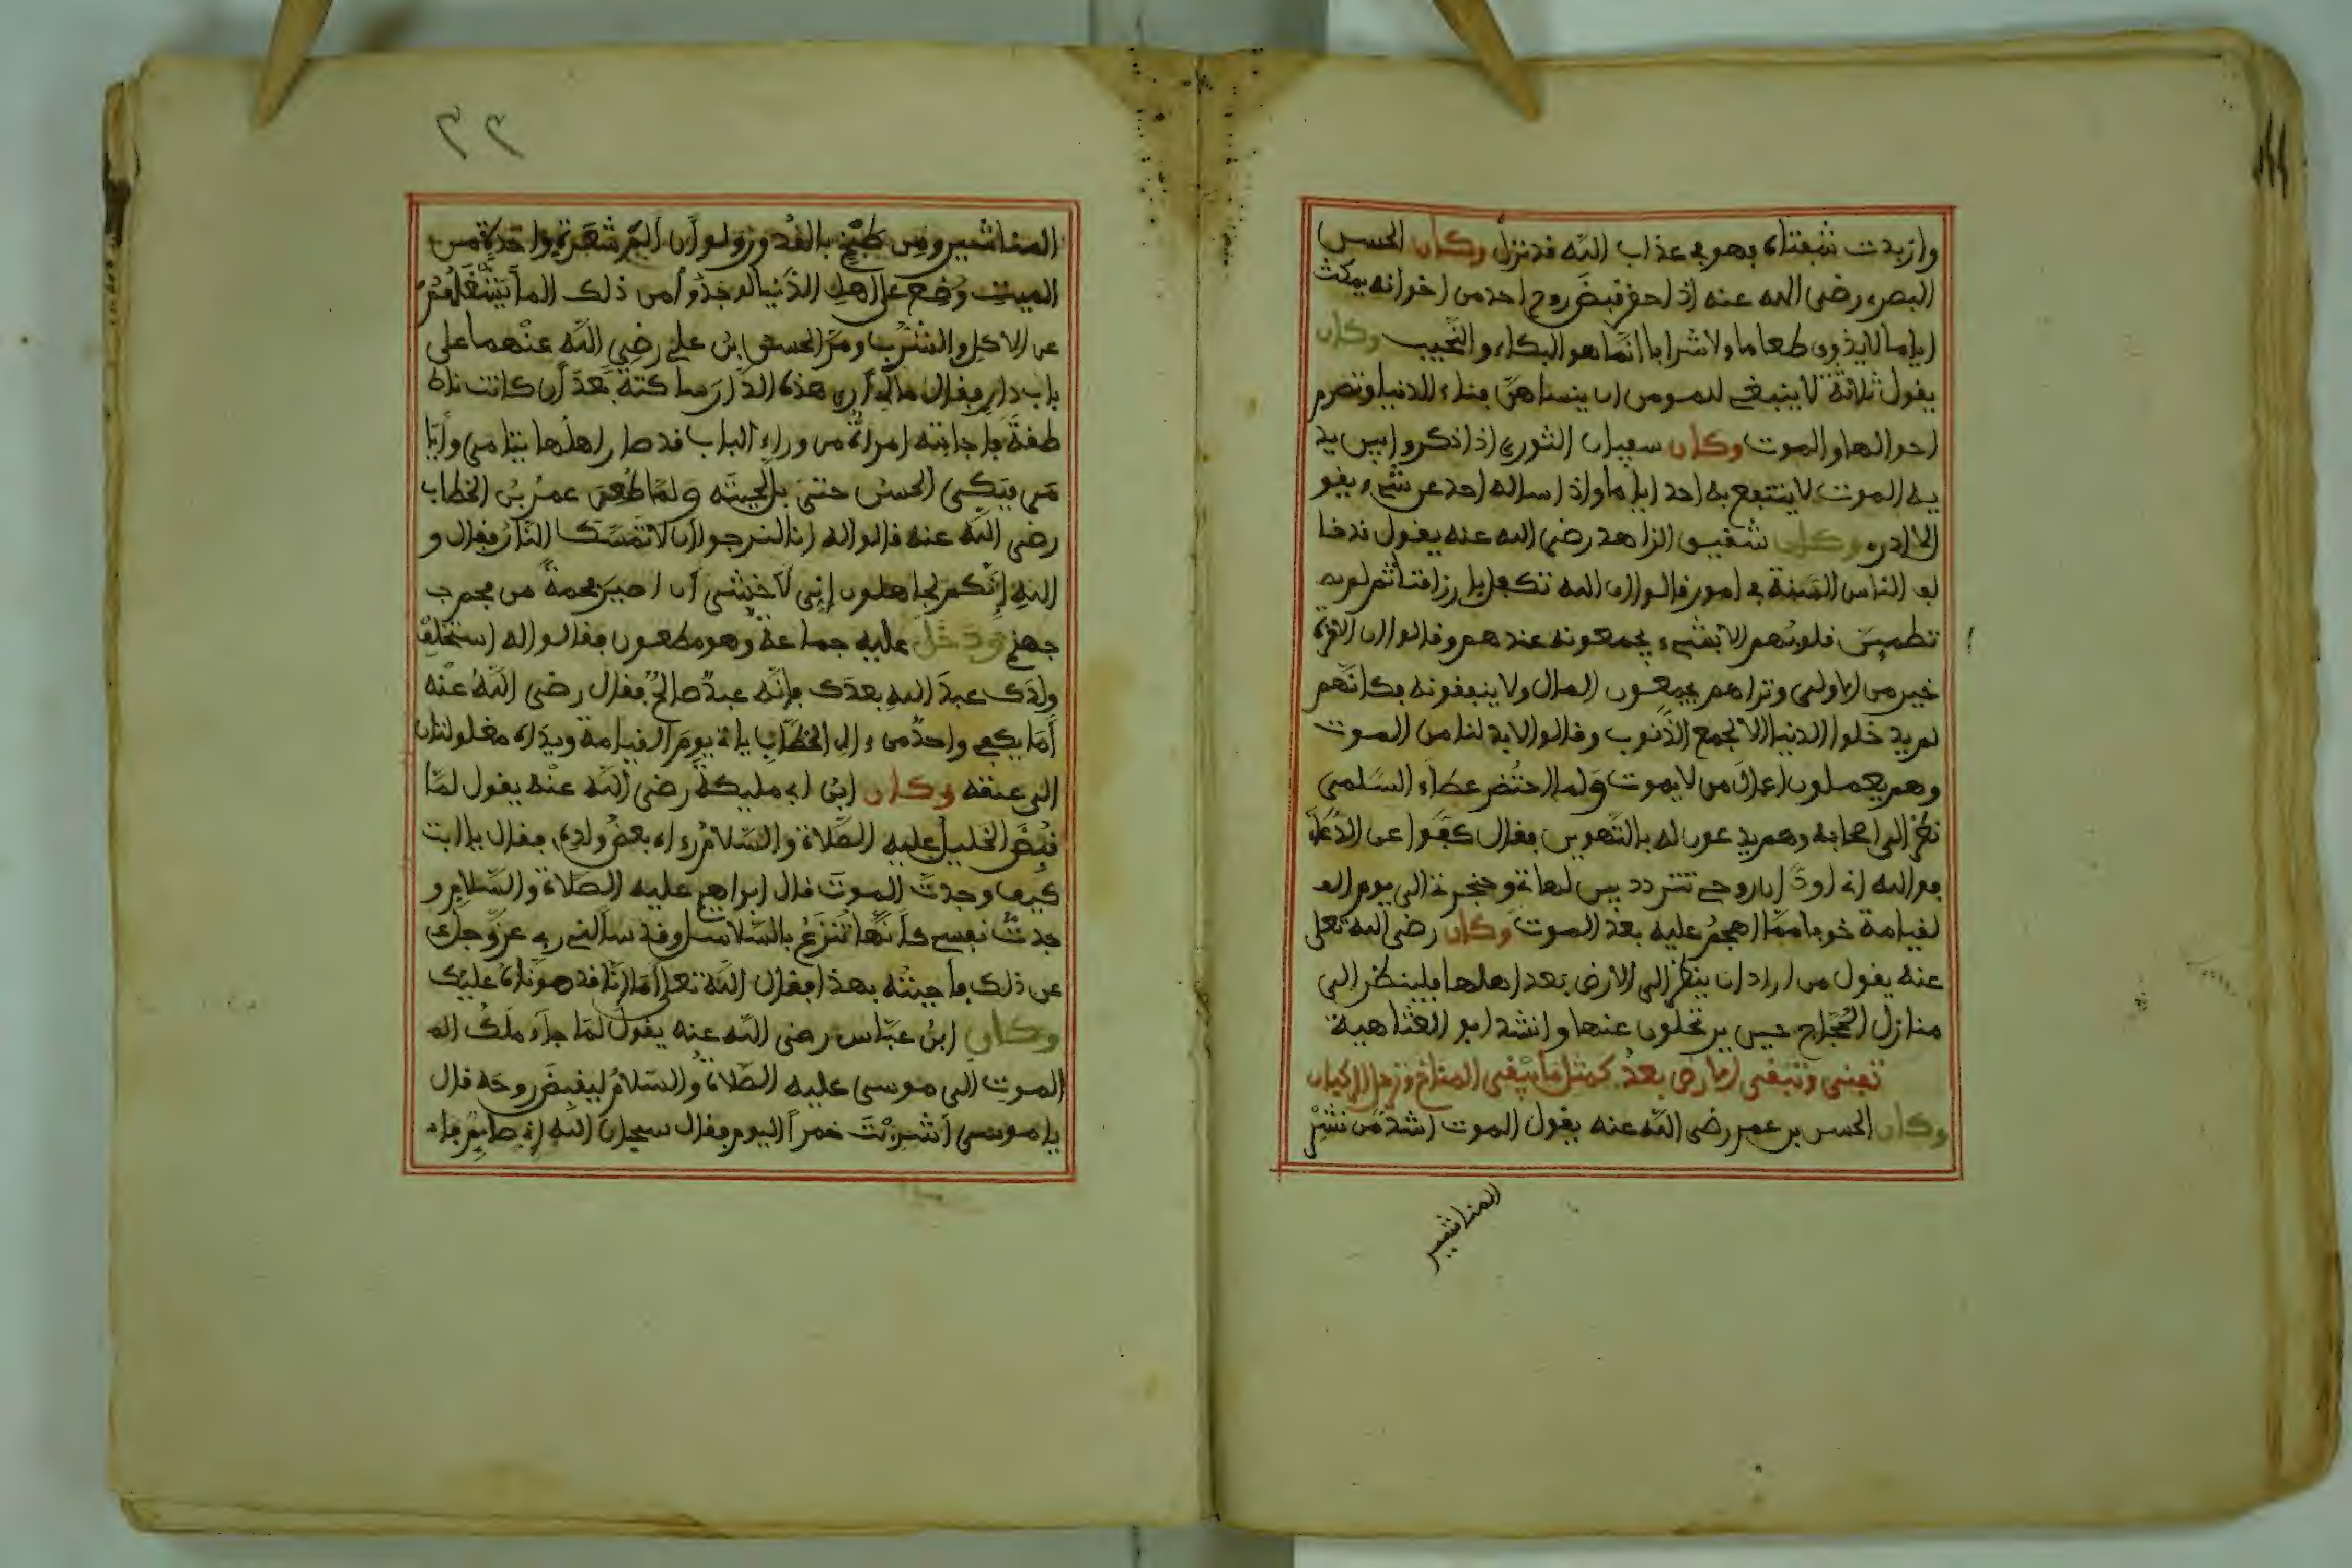 وازبدت شفتاه فهو في عذاب الله قد نزل وكان الحسن
البصري رضي الله عنه إذا حضر قبض روح احد من اخوانه يمكث
اياما لا يذوق طعاما ولا شرابا انما هو البكاء والنحيب وكان
يقول ثلاثة لا ينبغي لمومن ان ينساهن فناء الدنيا وتصرم
احوالها والموت وكان سفيان الثوري إذا ذكروا بين يد
يه الموت لا ينتفع به احد اياما وإذا ساله احد عن شيء يقو
ل لا ادري وكان شقيق الزاهد رضي الله عنه يقول قد خا
لف الناس في امور قالوا ان الله تكفل بارزاقنا ثم لم
تطمين قلوبهم الا بشيء يجمعونه عندهم وقالوا ان الاخرة
خير من الاولى وتراهم يجمعون المال ولا ينفقونه فكانهم
لم يدخلوا الدنيا الا لجمع الذنوب وقالوا لا بد لنا من الموت
وهم يعملون اعمال من لا يموت ولما احتضر عطاء السلمي
نظر الى اصحابه وهم يدعون له بالتهوين فقال كفوا عن الدعاء
فوالله اني اودّ ان روحي تتردد بين لهاتي وحنجرتي الى يوم ا
لقيامة خوفا مما اهجم عليه بعد الموت وكان رضي الله تعلى
عنه يقول من اراد ان ينظر الى الارض بعد اهلها فلينظر الى
منازل الحجاج حين يرتحلون عنها وانشد ابو العتاهية
تفنى وتبقى الارض بعدك مثل ما يبقى المناخ وترحل الركبان
وكان الحسن بن عمر رضي الله عنه يقول الموت اشد من نشر
المناشير
٣٣
المناشير ومن طبخ بالقدور ولو ان الم شعرة واحدة من
الميت وضع على اهل الدنيا لوجدوا من ذلك الما يشغلهم
عن الاكل والشرب ومر الحسن بن علي رضي الله عنهما على
باب دار فقال ما لي ارى هذه الدار ساكتة بعد ان كانت نا
طقة فاجابته امراة من وراء الباب قد صار اهلها يتامى وايا
مى فبكى الحسن حتى بل لحيته ولما طعن عمر بن الخطاب
رضي الله عنه قالوا له انا لنرجوا ان لا تمسك النار فقال و
الله انكم لجاهلون اني لاخشى ان اصير فحمة من فحم
جهنم ودخل عليه جماعة وهو مطعون فقالوا له استخلف
ولدك عبد الله بعدك فانه عبد صالح فقال رضي الله عنه
أما يكفي واحد من ءال الخطاب ياتي يوم القيامة ويداه مغلولتان
الى عنقه وكان ابن ابي مليكة رضي الله عنه يقول لما
قبض الخليل عليه الصلاة والسلام رءاه بعض ولده فقال يا ابت
كيف وجدت الموت قال ابراهيم عليه الصلاة والسلام و
جدت نفسي كانها تنزع بالسلاسل وقد سالني ربي عز وجل
عن ذلك فاجبته بهذا فقال الله تعلى أما انا قد هوناه عليك
وكان ابن عباس رضي الله عنه يقول لما جاء ملك ا
الموت الى موسى عليه الصلاة والسلام ليقبض روحه قال
يا موسى أشربت خمرا اليوم فقال سبحان الله اني صايم